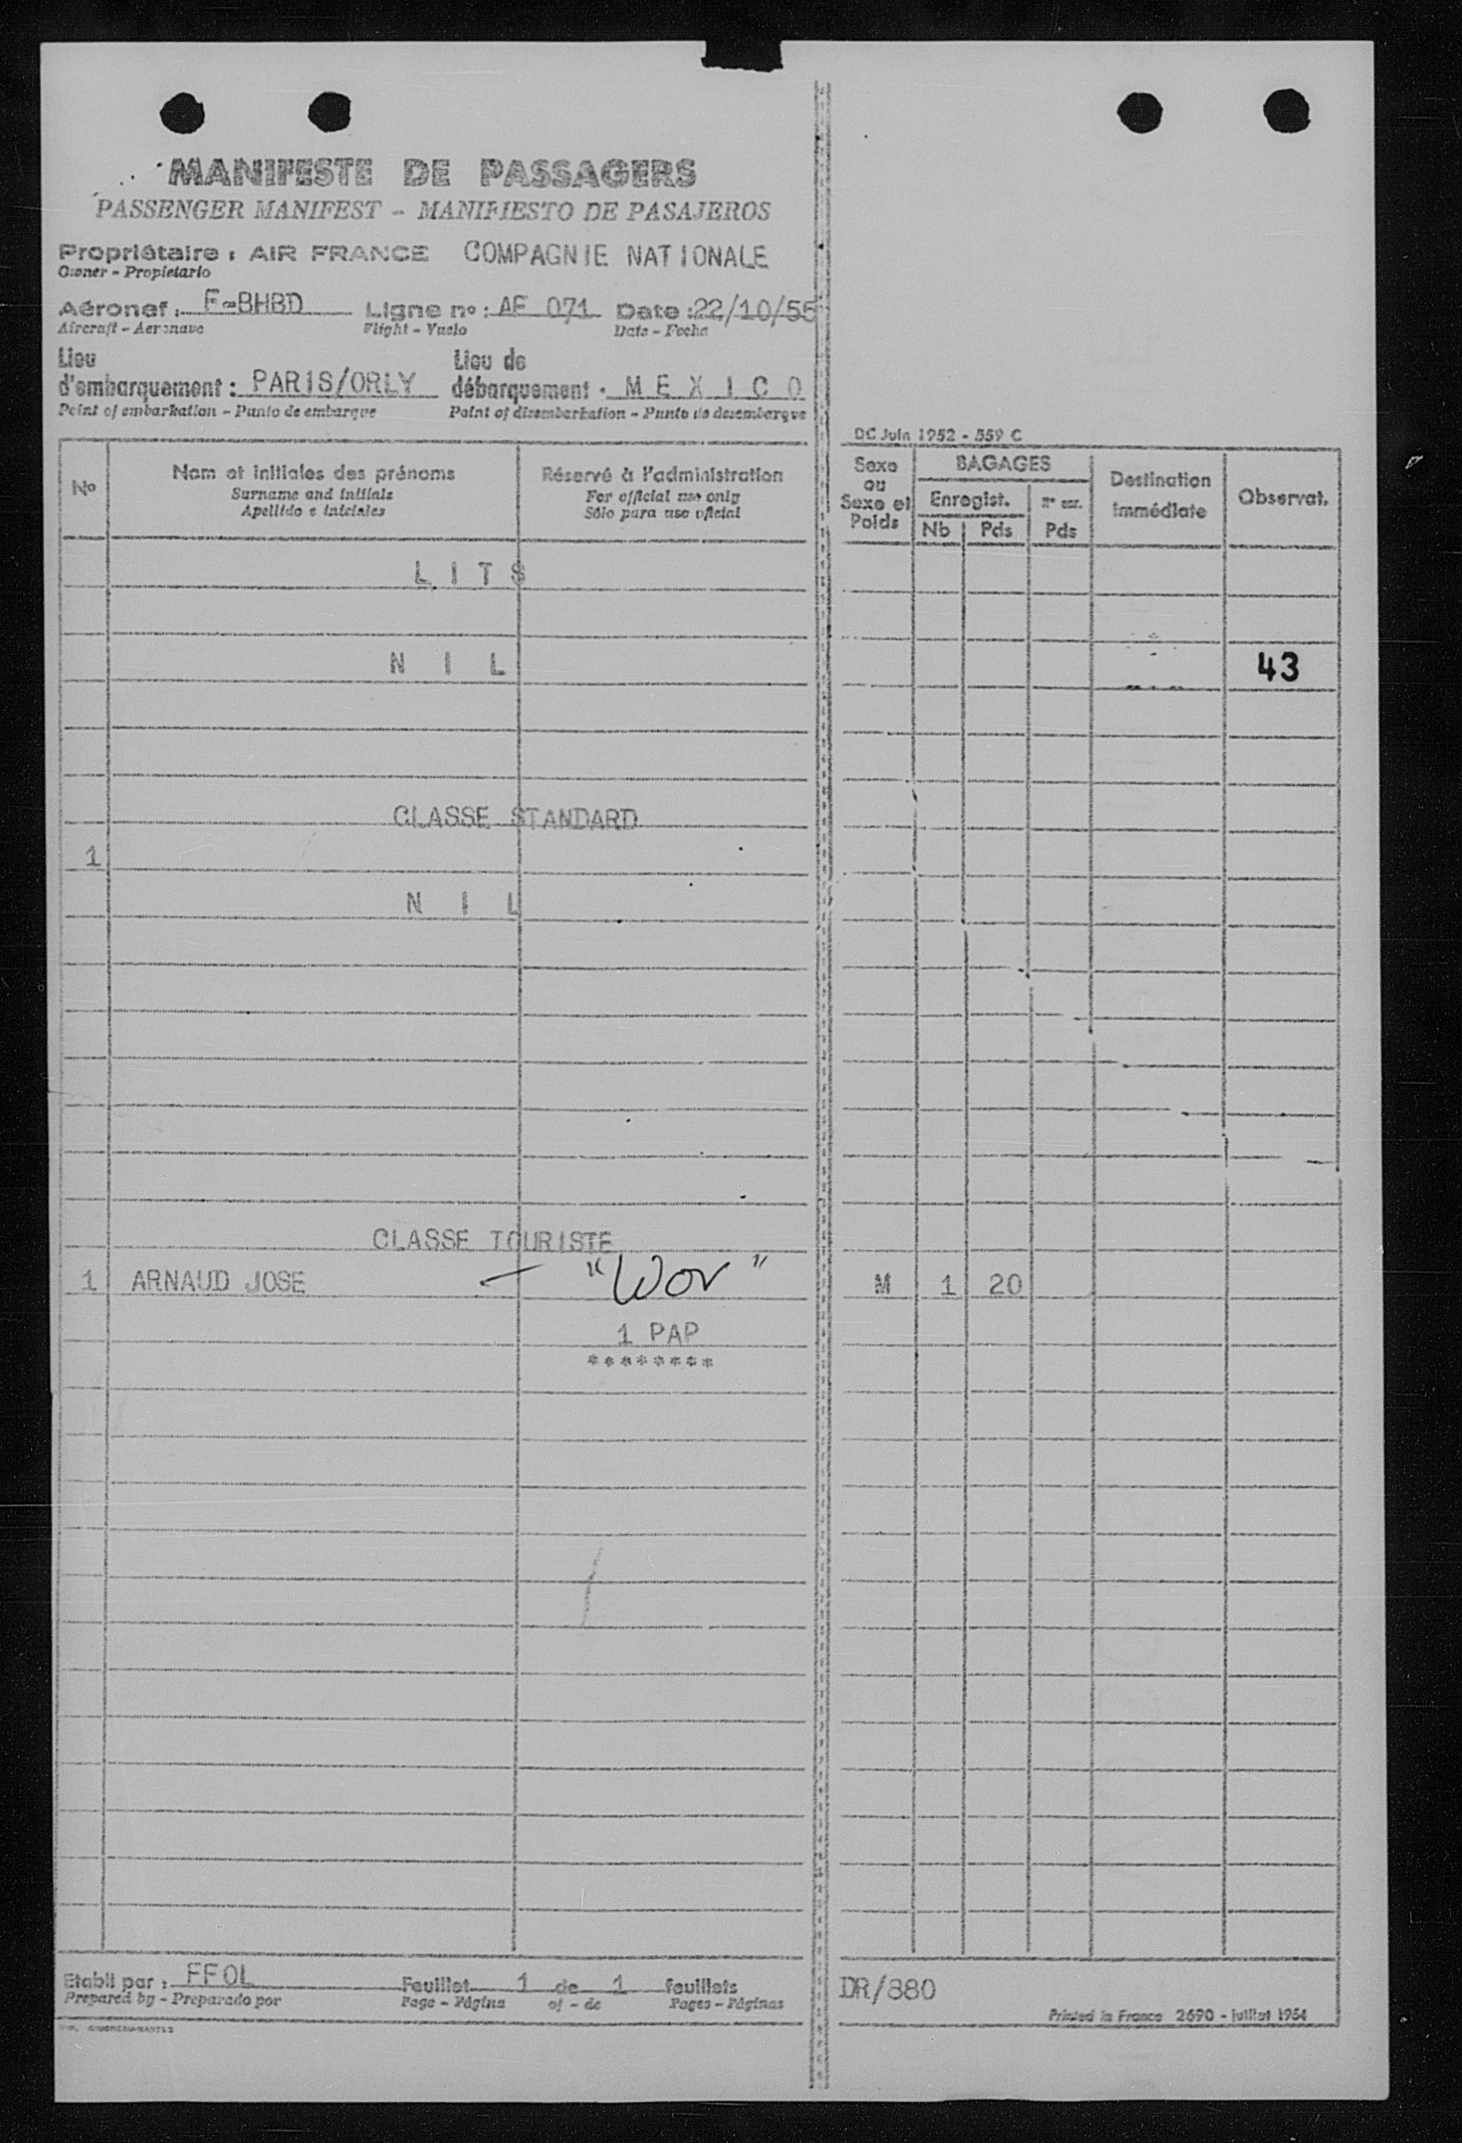 MANIFESTE DE PASSAGERS
PASSENGER MANIFEST - MANIFIESTO DE PASAJEROS
Propriétaire : AIR FRANCE COMPAGNIE NATIONALE
Owner - Propietario
Aéronef : F-BHBD Ligne nº : AF 071 Date : 22/10/55
Aircraft - Aeronave Flight - Vuelo Date - Fecha
Lieu d'embarquement : PARIS/ORLY Lieu de débarquement : MEXICO
Point of embarkation - Punto de embarque Point of disembarkation - Punto de desembarque
DC Juin 1952 - 559 C
Nº Nom et initiales des prénoms Réservé à l'administration
Surname and initials For official use only
Apellido e iniciales Sólo para uso oficial
Sexe ou Sexe et Poids BAGAGES Destination immédiate Observat.
Enregist.
Nb Pds Pds
LITS
NIL
43
CLASSE STANDARD
1
NIL
CLASSE TOURISTE
1 ARNAUD JOSE "Wor" M 1 20
1 PAP
********
Etabli par : FFOL Feuillet 1 de 1 feuillets
Prepared by - Preparado por Page - Página of - de Pages - Páginas
DR/880
Printed in France 2690 - juillet 1954